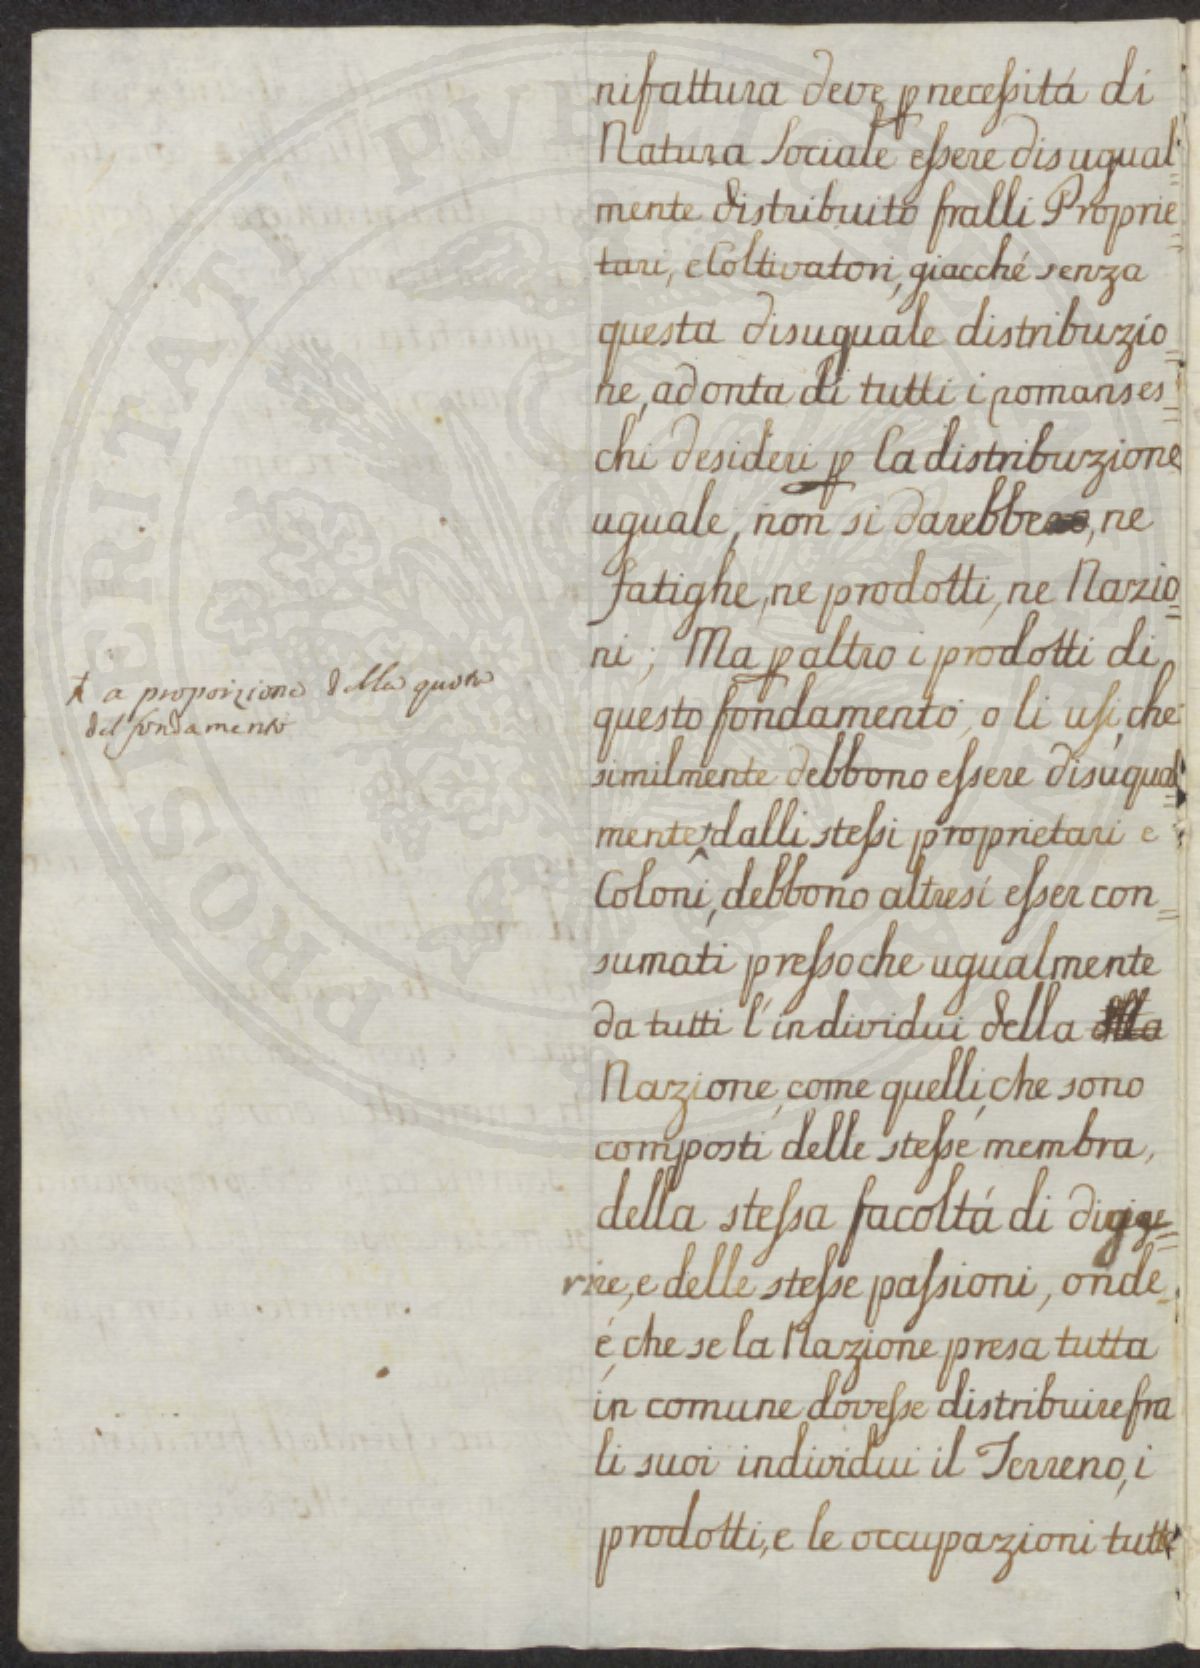 nifattura deve p necessitá di
Natura Sociale essere disugual=
mente distribuito fralli Proprie=
tari, e Coltivatori, giacché senza
questa disuguale distribuzio=
ne, ad onta di tutti i romanses=
chi desideri p la distribuzione
uguale, non si darebbe, ne
fatighe, ne prodotti, ne Nazio=
ni; Ma p altro i prodotti di
questo fondamento, o li usi, che
similmente debbono essere disugual=
mente dalli stessi proprietari e
Coloni, debbono altresí esser con=
sumati pressoche ugualmente
da tutti l'individui della
Nazione, come quelli, che sono
composti delle stesse membra,
della stessa facoltá di digige=
rire, e delle stesse passioni, onde
é, che se la Nazione presa tutta
in comune dovesse distribuire fra
li suoi individui il Terreno, i
prodotti, e le occupazioni tutte
a proporzione della quota
del fondamento
PROSPERITATI PVBLICAE